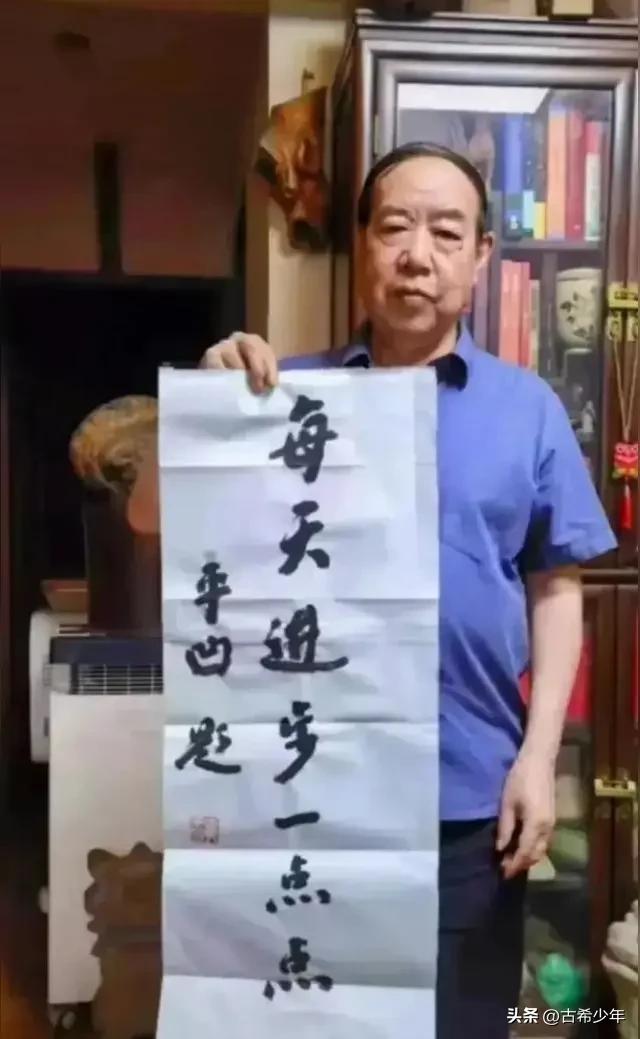 每天进步一点点
平凹题
头条 @古希少年